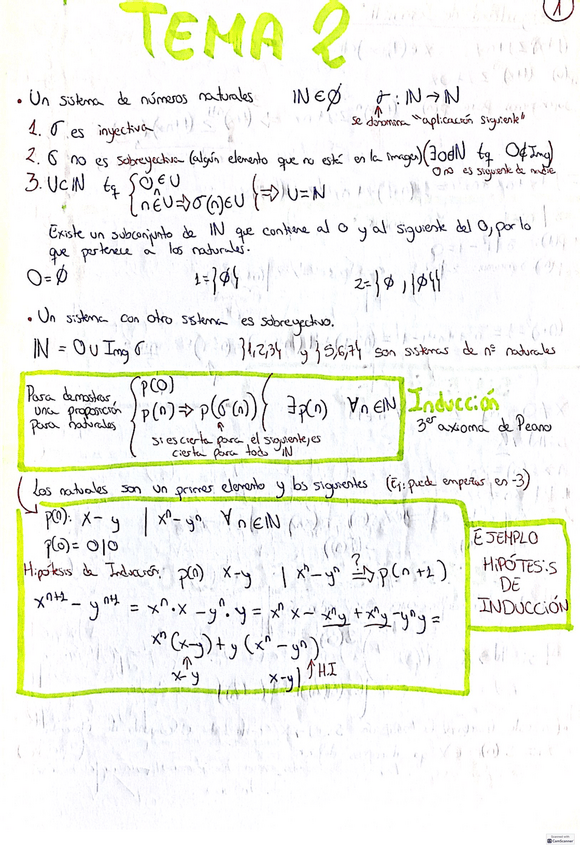 1
TEMA 2
• Un sistema de números naturales IN ∈ ∅ σ: IN → IN
se denomina "aplicación siguiente"
1. σ es inyectiva
2. σ no es sobreyectiva (algún elemento que no está en la imagen) (∃0∈IN tq 0∉Img)
0 no es siguiente de nadie
3. U⊂IN tq { 0∈U
n∈U ⇒ σ(n)∈U } ⇒ U=IN
Existe un subconjunto de IN que contiene al 0 y al siguiente del 0, por lo
que pertenece a los naturales.
0=∅ 1={∅} 2={∅,{∅}}
• Un sistema con otro sistema es sobreyectivo.
IN = 0 ∪ Img σ {1,2,3} y {5,6,7} son sistemas de nº naturales
Para demostrar una proposición para naturales { p(0)
p(n) ⇒ p(σ(n)) } ∃p(n) ∀n∈IN
si es cierta para el siguiente, es
cierta para todo IN
Inducción
3er axioma de Peano
Los naturales son un primer elemento y los siguientes (Ej: puede empezar en -3)
p(n): x-y | xⁿ-yⁿ ∀n∈IN
p(0)= 0|0
Hipótesis de Inducción: p(n) x-y | xⁿ-yⁿ ?⇒ p(n+1)
xⁿ⁺¹ - yⁿ⁺¹ = xⁿ·x - yⁿ·y = xⁿx - xⁿy + xⁿy - yⁿy =
xⁿ(x-y) + y(xⁿ-yⁿ)
x-y x-y| HI
EJEMPLO
HIPÓTESIS
DE
INDUCCIÓN
CamScanner